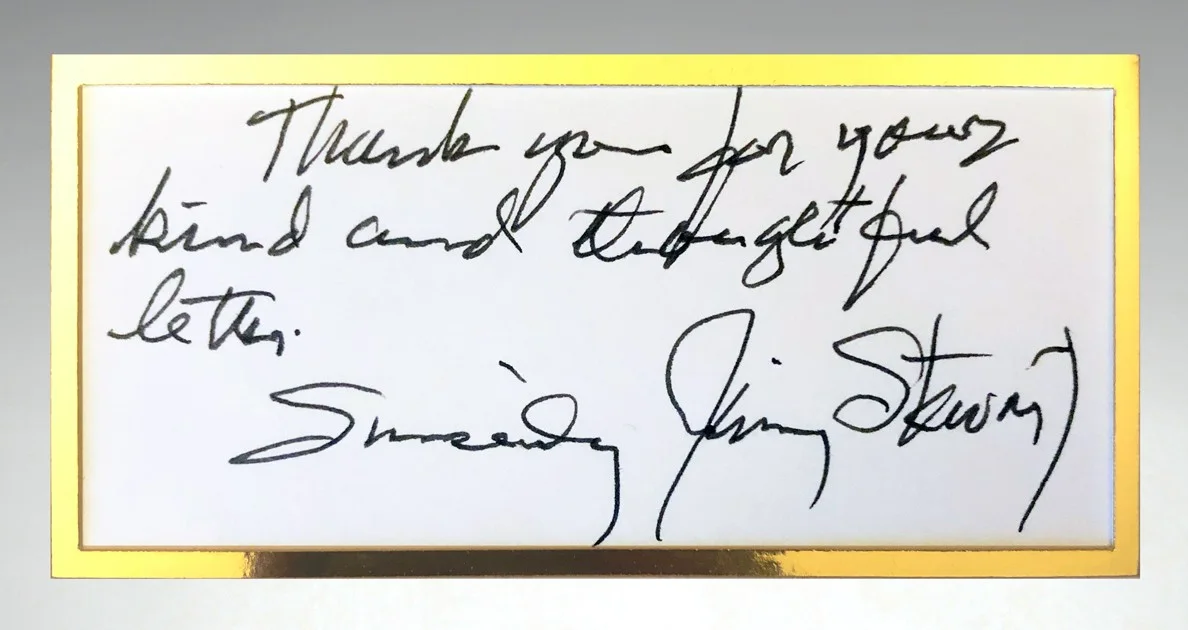 Thank you for your
kind and thoughtful
letter.
Sincerely Jimmy Stewart